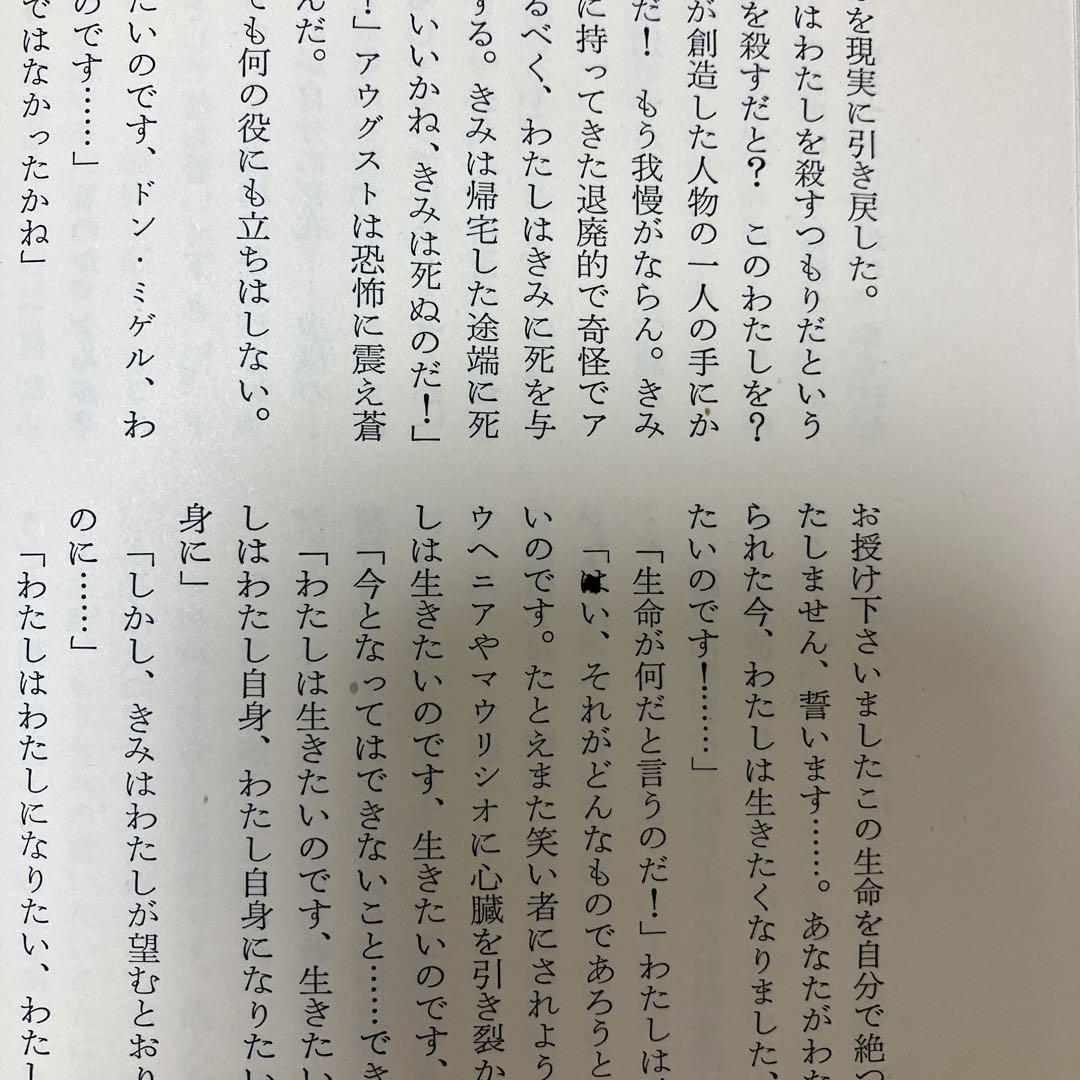 を現実に引き戻した。
はわたしを殺すつもりだという
を殺すだと？　このわたしを？
が創造した人物の一人の手にか
だ！　もう我慢がならん。きみ
に持ってきた退廃的で奇怪でア
るべく、わたしはきみに死を与
する。きみは帰宅した途端に死
いいかね、きみは死ぬのだ！」
！」アウグストは恐怖に震え蒼
んだ。
ても何の役にも立ちはしない。
たいのです、ドン・ミゲル、わ
のです……」
ではなかったかね」
お授け下さいましたこの生命を自分で絶つ
たしません、誓います……。あなたがわた
られた今、わたしは生きたくなりました、
たいのです！……」
「生命が何だと言うのだ！」わたしは
「はい、それがどんなものであろうと
いのです。たとえまた笑い者にされよう
ウヘニアやマウリシオに心臓を引き裂か
しは生きたいのです、生きたいのです、
「今となってはできないこと……でき
「わたしは生きたいのです、生きたい
しはわたし自身、わたし自身になりたい
身に」
「しかし、きみはわたしが望むとおり
のに……」
「わたしはわたしになりたい、わたし